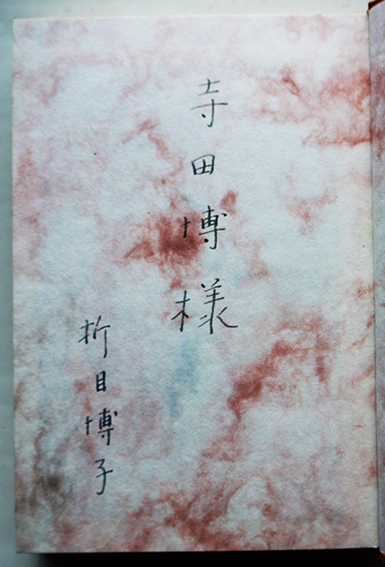 寺田博様
折目博子